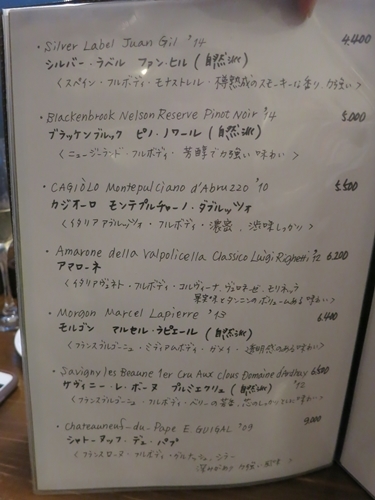 ・Silver Label Juan Gil '14 4,400
シルバー・ラベル ファン・ヒル (自然派)
〈スペイン・フルボディ・モナストレル・樽熟成のスモーキーな香り 力強い〉
・Blackenbrook Nelson Reserve Pinot Noir '14 5,000
ブラッケンブルック ピノ・ノワール (自然派)
〈ニュージーランド・フルボディ・芳醇で力強い味わい〉
・CAGIOLO Montepulciano d'Abruzzo '10 5,500
カジオーロ モンテプルチャーノ・ダブルッツォ
〈イタリア アブルッツォ・フルボディ・濃密、渋味しっかり〉
・Amarone della Valpolicella Classico Luigi Righetti '12 6,200
アマローネ
〈イタリアヴェネト・フルボディ・コルヴィーナ、ヴェロネーゼ、モリナーラ
果実味とタンニンのボリュームある味わい〉
・Morgon Marcel Lapierre '13 6,400
モルゴン マルセル・ラピエール (自然派)
〈フランスブルゴーニュ・ミディアムボディ・ガメイ・透明感のある味わい〉
・Savigny les Beaune 1er Cru Aux Clous Domaine d'Ardhuy 6,500
サヴィニー・レ・ボーヌ プルミエクリュ (自然派) '12
〈フランスブルゴーニュ・フルボディ・ベリーの
・Chateauneuf-du-Pape E.GUIGAL '09 9,000
シャトー・ヌッフ・デュ・パプ
〈フランスローヌ・フルボディ・グルナッシュ、シラー
深みがあり 力強い